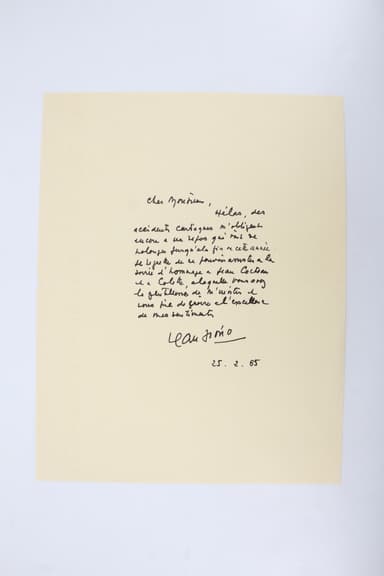 Cher Monsieur,
Hélas, des
accidents cardiaques m'obligent
encore a un repos qui doit se
prolonger jusqu'a la fin de cette année
Je regrette de ne pouvoir assister a la
soirée d'hommage a Jean Cocteau
et a Colette, a laquelle vous avez
la gentillesse de m'inviter. Je
vous prie de croire a l'excellence
de mes sentiments
Jean Giono
25. 2. 65